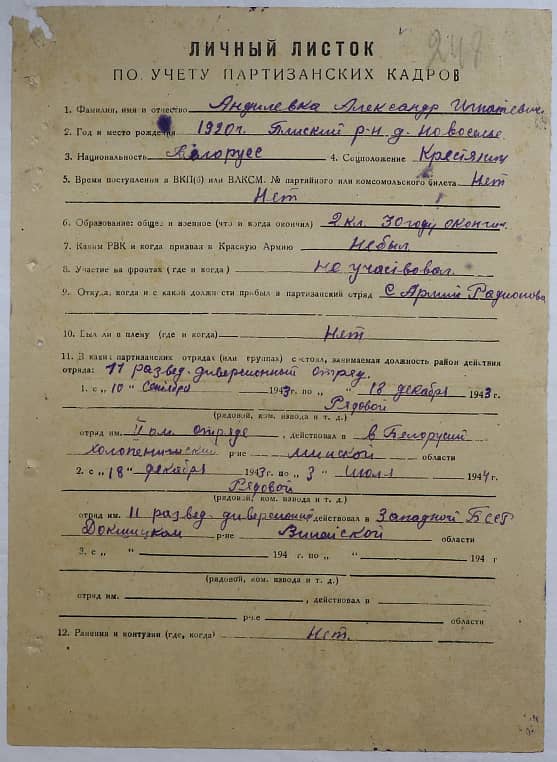 248
ЛИЧНЫЙ ЛИСТОК
ПО УЧЕТУ ПАРТИЗАНСКИХ КАДРОВ
1. Фамилия, имя и отчество Андилевка Александр Игнатевич
2. Год и место рождения 1920г. Плиский р-н д. Новоселье
3. Национальность Белорусс 4. Соцположение Крестянин
5. Время поступления в ВКП(б) или ВЛКСМ. № партийного или комсомольского билета Нет
Нет
6. Образование: общее и военное (что и когда окончил) 2 кл. 30 году окончил.
7. Каким РВК и когда призван в Красную Армию Небыл
8. Участие на фронтах (где и когда) но участвовал
9. Откуда, когда и с какой должности прибыл в партизанский отряд С Армий Радионова
10. Был ли в плену (где и когда) Нет
11. В каких партизанских отрядах (или группах) состоял, занимаемая должность район действия
отряда: 11 развед-диверсионный отряд.
1. с „ 10 " Сентября 1943 г. по „ " 18 декабря 1943 г.
Рядовой
(рядовой, ком. взвода и т. д.)
отряд им. отряде , действовал в в Белорусий
холопенический р-не минской области
2. с „ 18 " декабря 1943 г. по „ 3 " июля 1944 г
Рядовой
(рядовой, ком. взвода и т. д.)
отряд им. 11 развед-диверсионий действовал в Западной БССР
Докшицком р-не Вилейской области
3. с „ " 194 г. по „ " 194 г
(рядовой, ком. взвода и т. д.)
отряд им. , действовал в
р-не области
12. Ранения и контузии (где, когда) Нет.